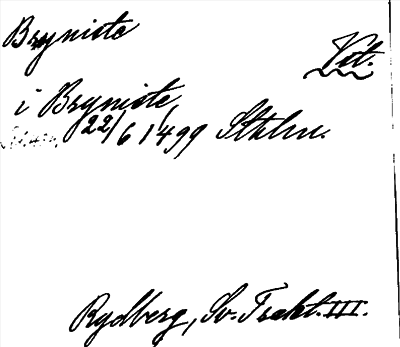 Brynisto
Vit.
i Bryniste,
22/6 1499 Sthlm.
Rydberg, Sv. Trakt. III.